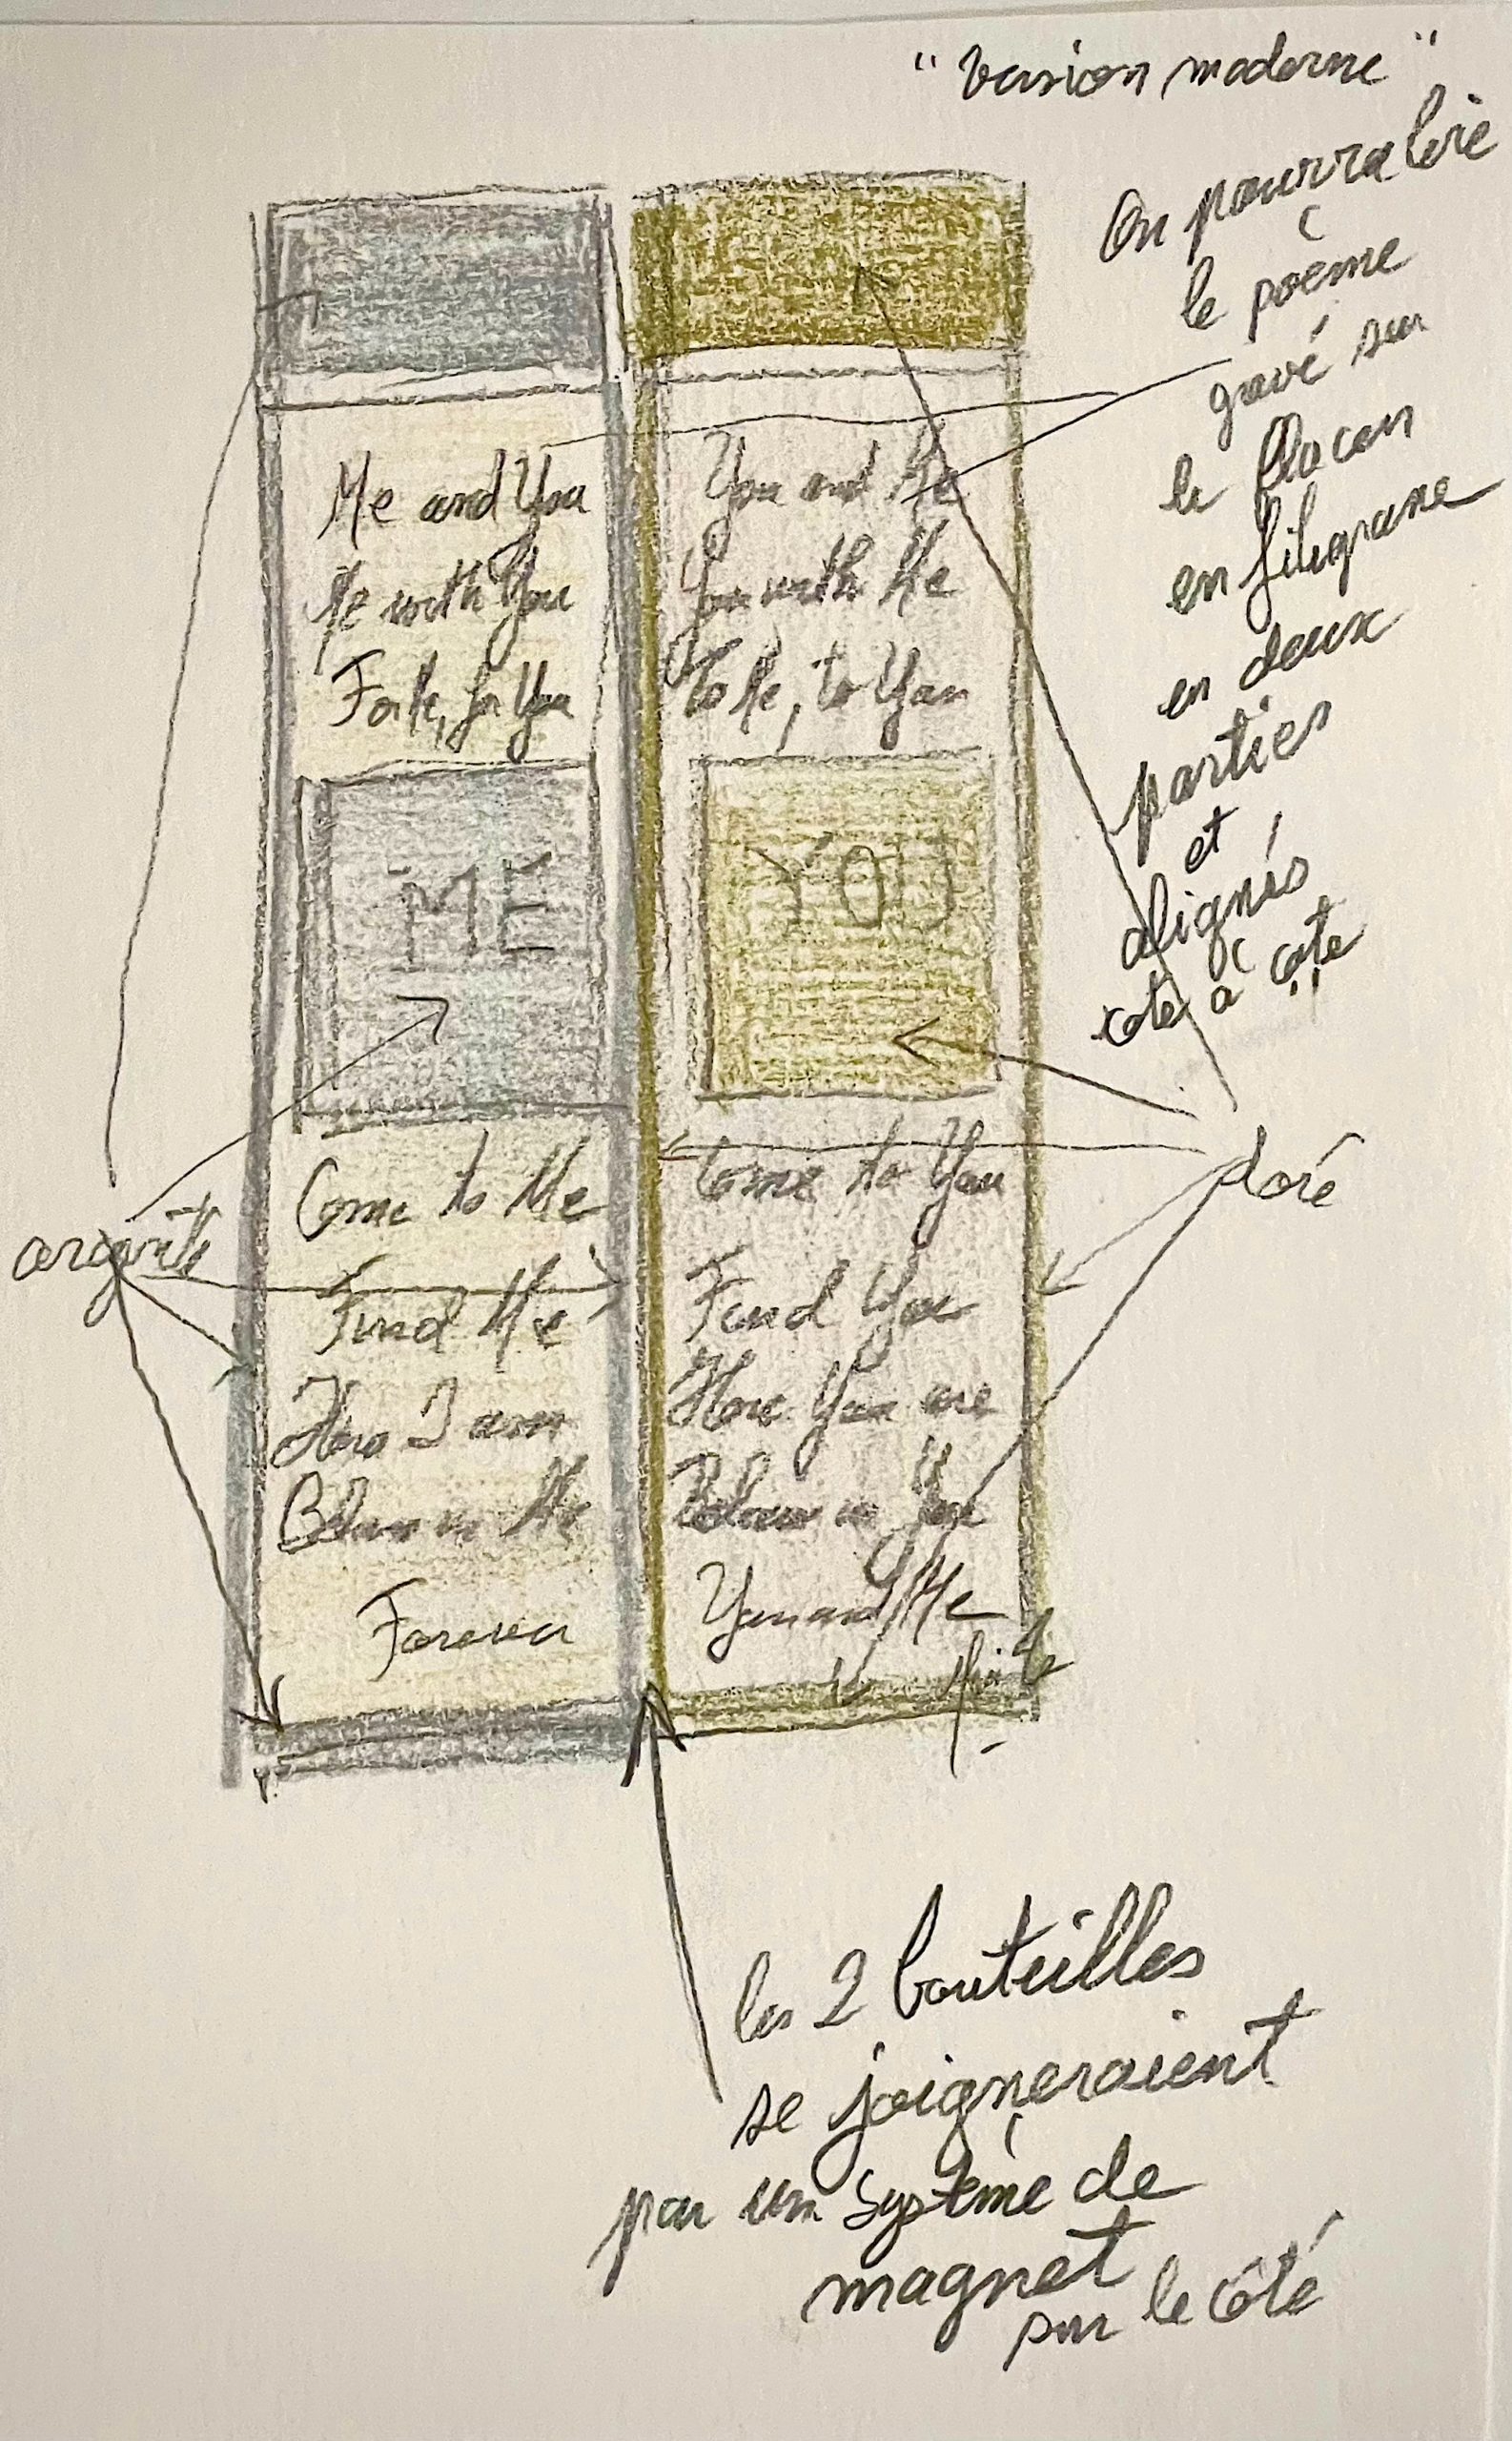 "Version moderne"
On pourra lire
le poème
gravé sur
le flacon
en filigrane
en deux
parties
et
alignés
cote à côte
Me and You
Me with You
For Me, for You
ME
Come to Me
Find Me
Here I am
Believe in Me
Forever
You and Me
You with Me
To Me, to You
YOU
Come to You
Find You
Here You are
Believe in You
You and Me
argenté
doré
les 2 bouteilles
se joigneraient
par un système de
magnet
sur le côté